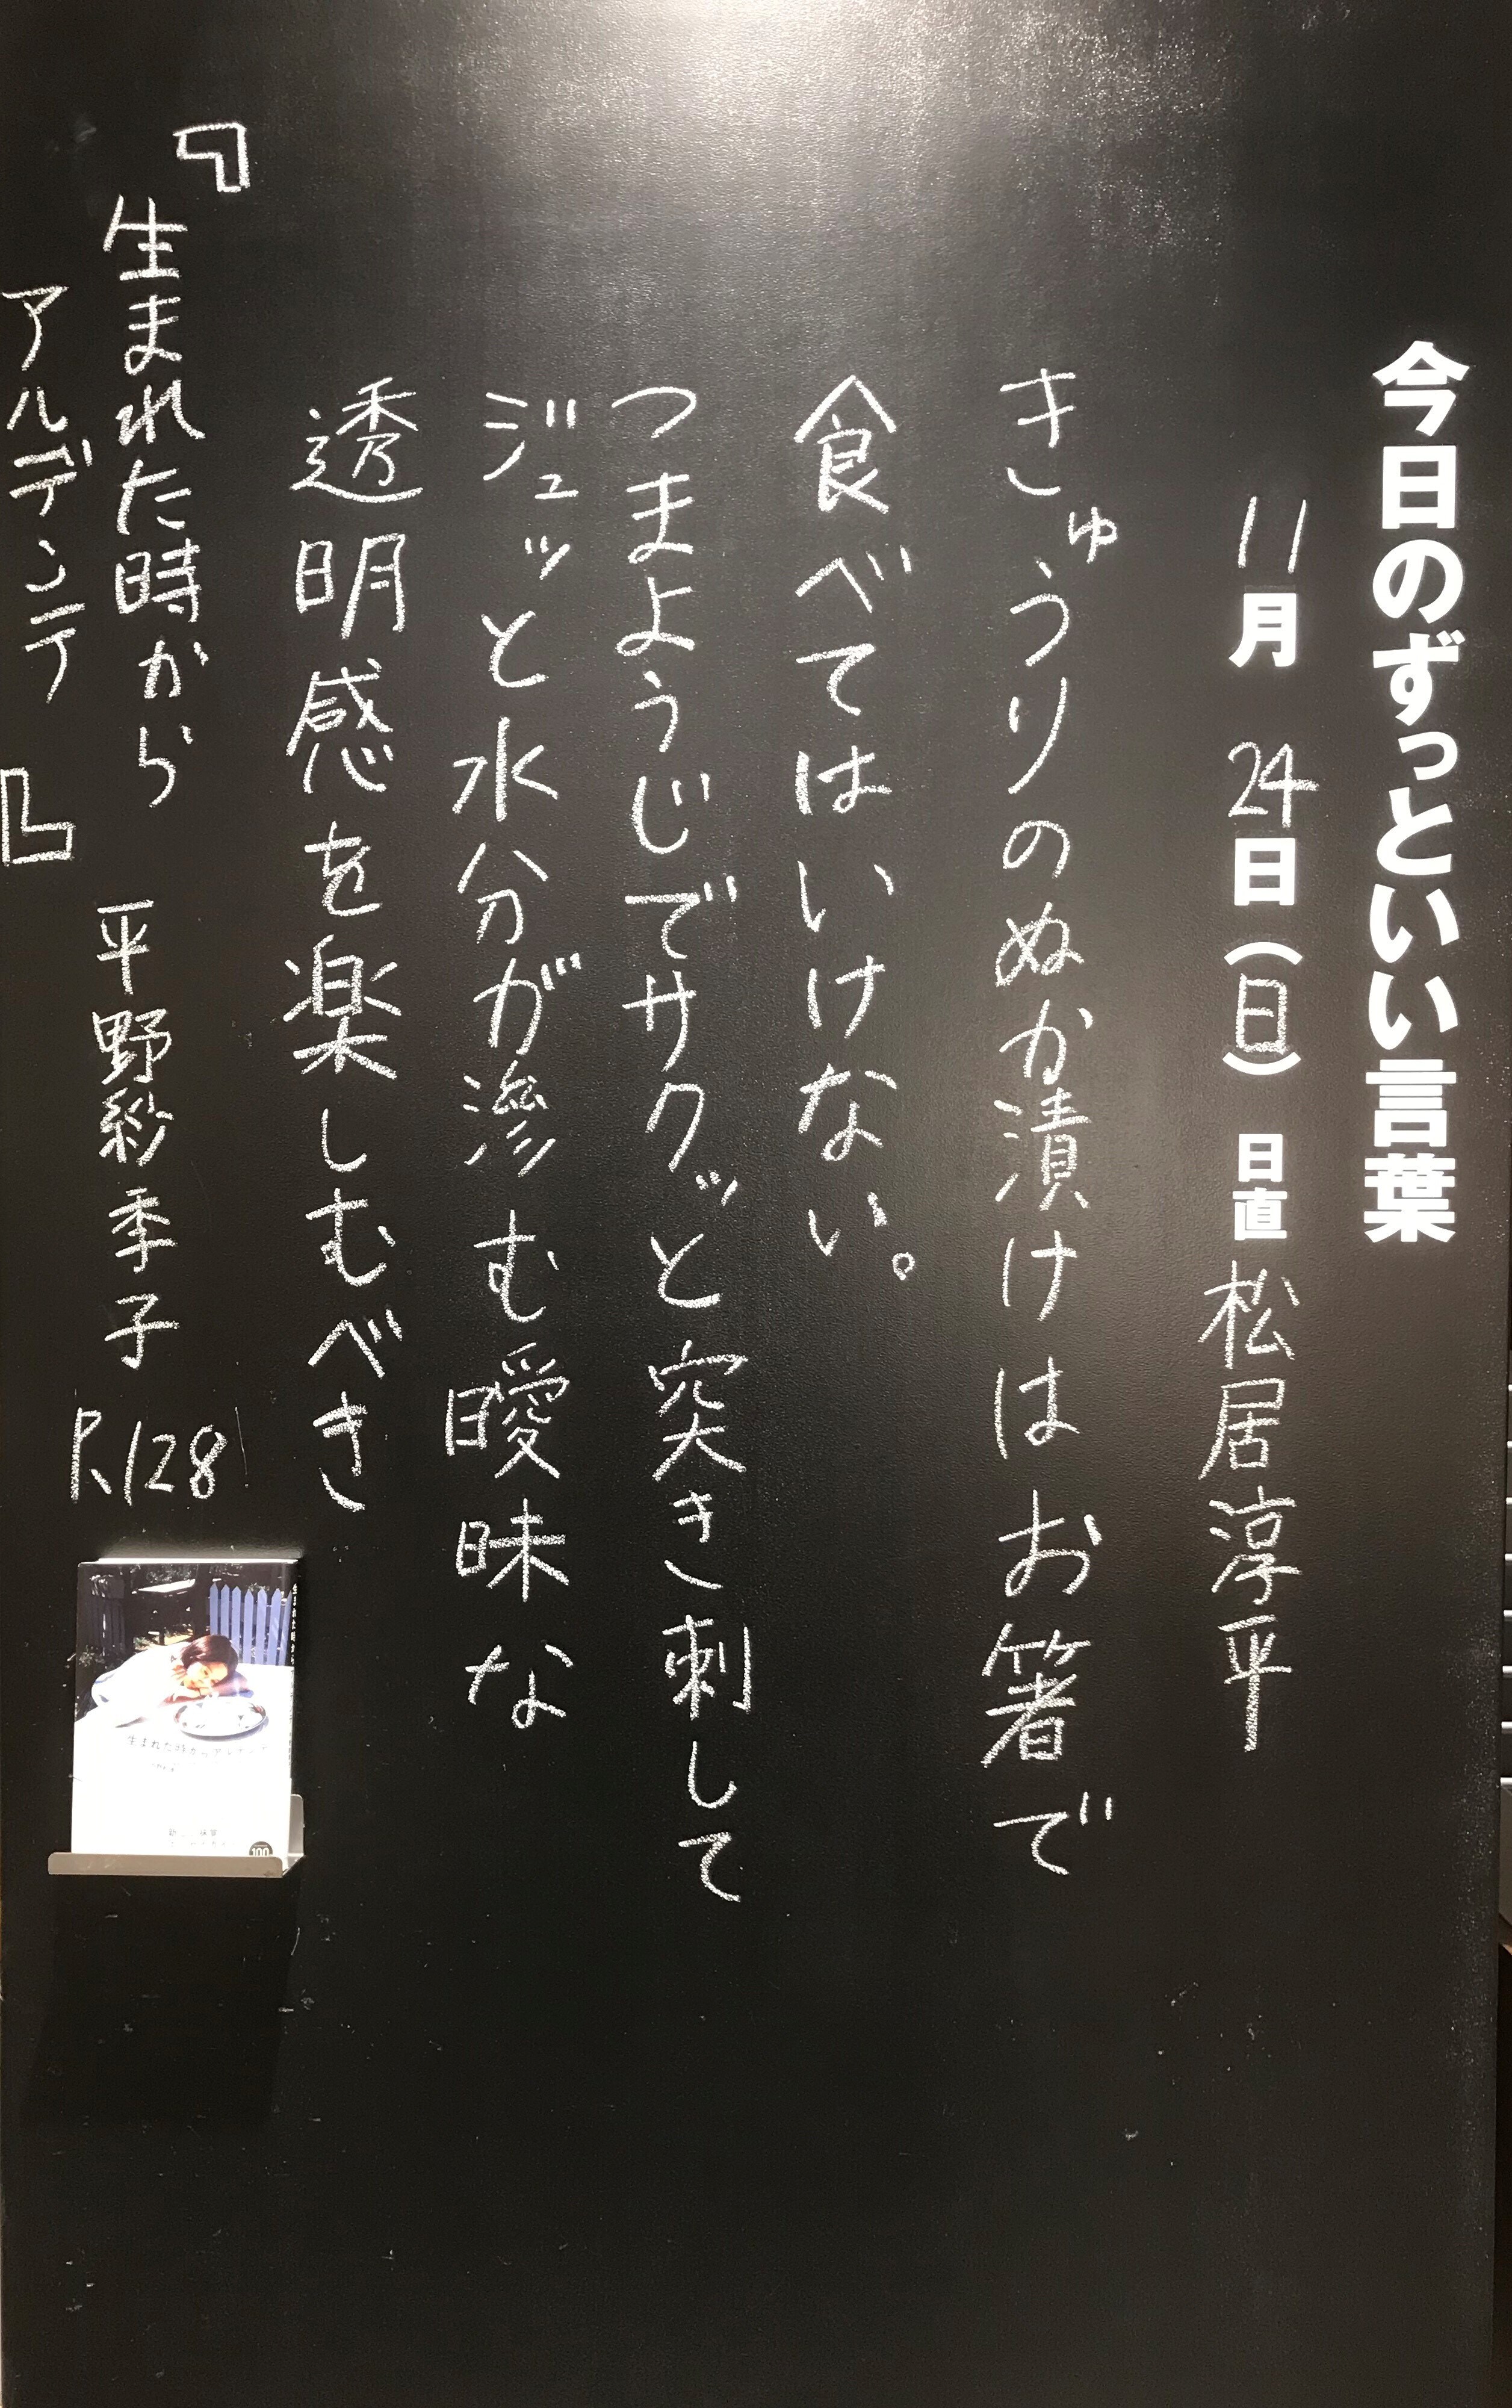 今日のずっといい言葉
11月 24日(日) 日直 松居淳平
きゅうりのぬか漬けはお箸で
食べてはいけない。
つまようじでサクッと突き刺して
ジュッと水分が滲む曖昧な
透明感を楽しむべき
『生まれた時から
アルデンテ』
平野紗季子 P.128
生まれた時からアルデンテ
100